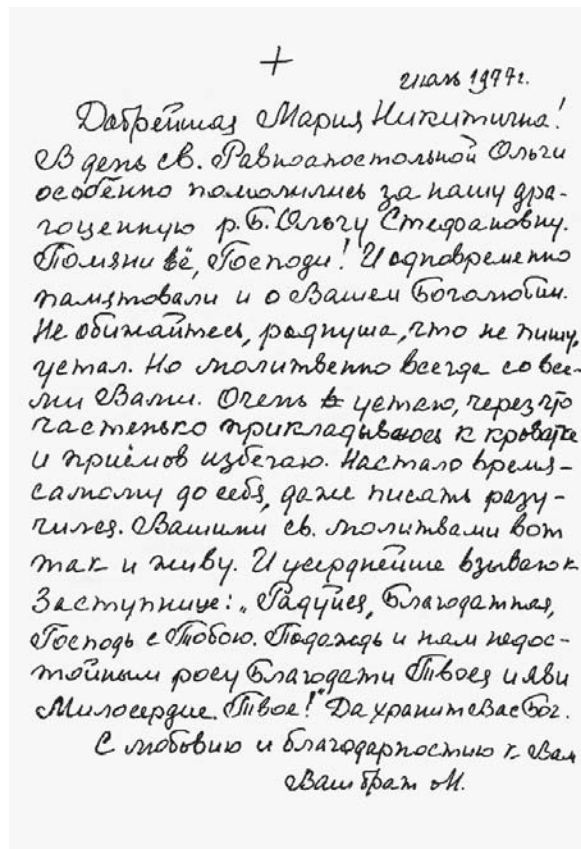 +
июль 1977г.
Добрейшая Мария Никитична!
В день св. Равноапостольной Ольги
особенно помолились за нашу дра-
гоценную р. Б. Ольгу Стефановну.
Помяни её, Господи! И одновременно
памятовали и о Вашем Боголюбии.
Не обижайтесь, роднуша, что не пишу,
устал. Но молитвенно всегда со все-
ми Вами. Очень устаю, через что
частенько прикладываюсь к кроватке
и приёмов избегаю. Настало время –
самому до себя, даже писать разу-
чился. Вашими св. молитвами вот
так и живу. И усерднейше взываю к
Заступнице: „Радуйся, Благодатная,
Господь с Тобою. Подаждь и нам недос-
тойным росу Благодати Твоея и яви
Милосердие Твое!" Да хранит Вас Бог.
С любовию и благодарностию к Вам
Ваш брат М.